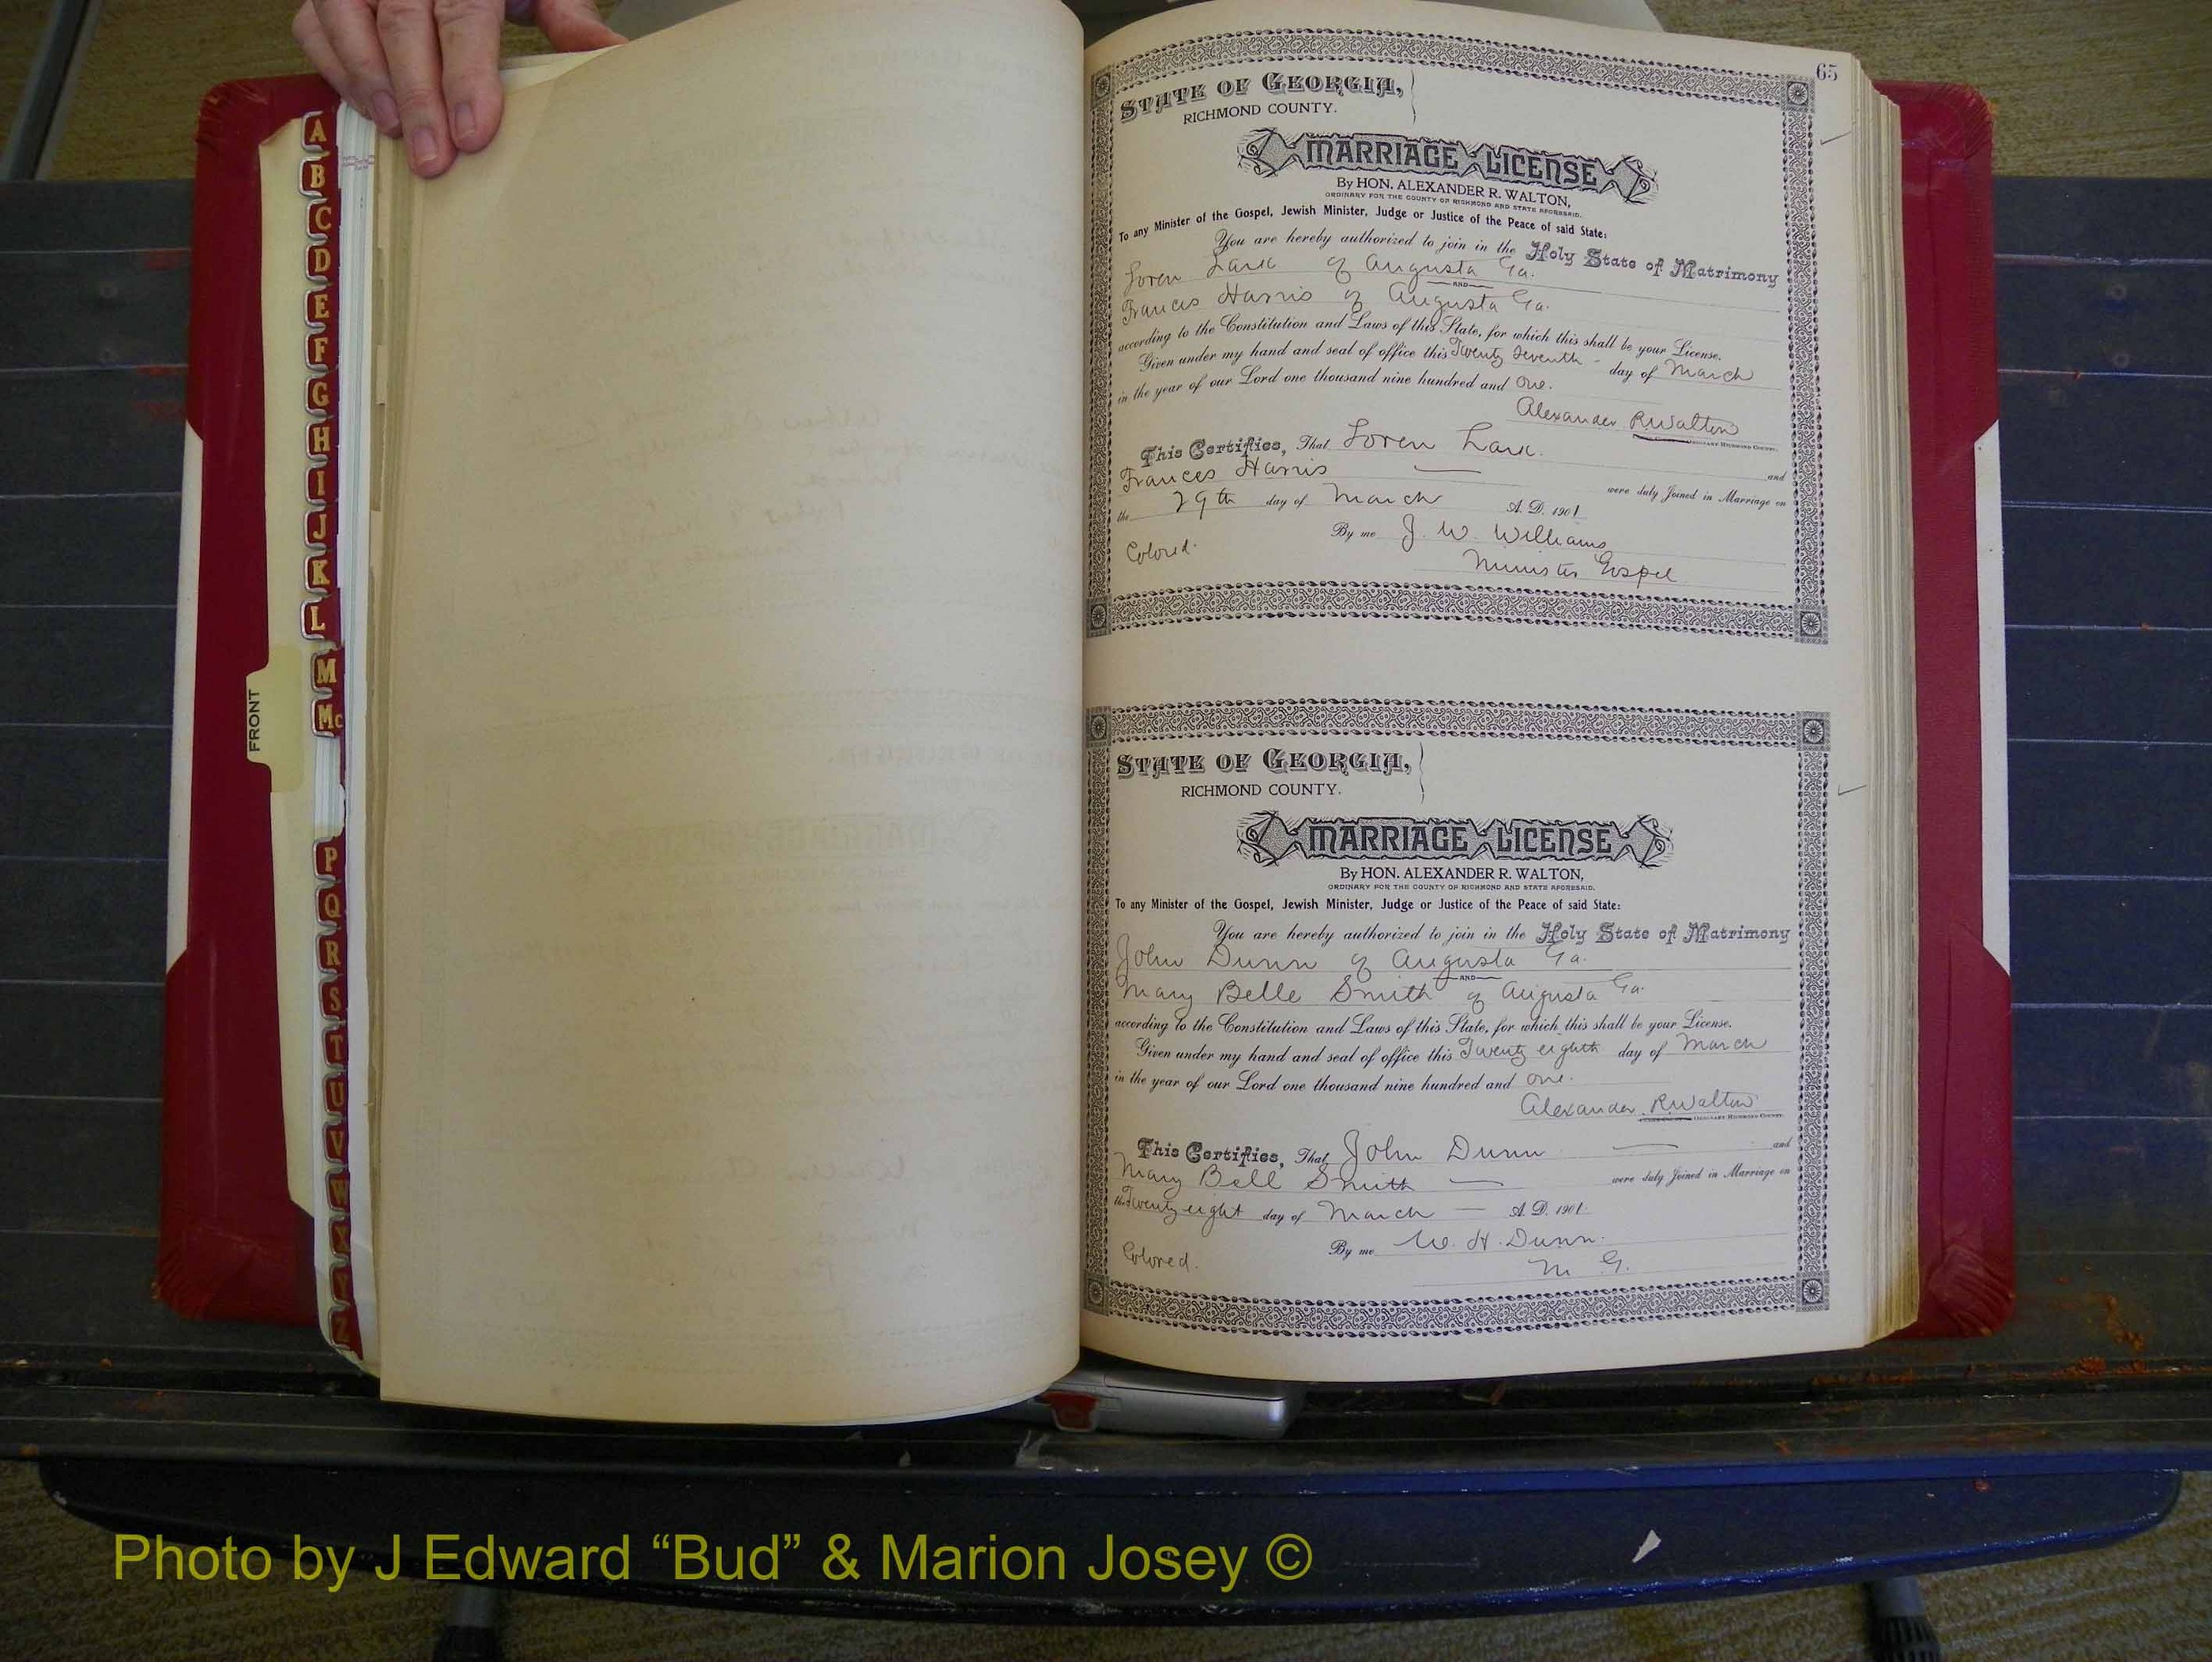 A
B
C
D
E
F
G
H
I
J
K
L
M
Mc
FRONT
P
Q
R
S
T
U
V
W
X
Y
Z
65
STATE OF GEORGIA,
RICHMOND COUNTY.
MARRIAGE LICENSE
By HON. ALEXANDER R. WALTON,
ORDINARY FOR THE COUNTY OF RICHMOND AND STATE AFORESAID.
To any Minister of the Gospel, Jewish Minister, Judge or Justice of the Peace of said State:
You are hereby authorized to join in the Holy State of Matrimony
Loren Lark of Augusta Ga.
AND
Frances Harris of Augusta Ga.
according to the Constitution and Laws of this State, for which this shall be your License.
Given under my hand and seal of office this Twenty Seventh day of March
in the year of our Lord one thousand nine hundred and one.
Alexander R Walton
ORDINARY RICHMOND COUNTY.
This Certifies, That Loren Lark. and
Frances Harris — were duly Joined in Marriage on
the 29th day of March A. D. 1901
By me J. W. Williams
Colored. Minister Gospel
STATE OF GEORGIA,
RICHMOND COUNTY.
MARRIAGE LICENSE
By HON. ALEXANDER R. WALTON,
ORDINARY FOR THE COUNTY OF RICHMOND AND STATE AFORESAID.
To any Minister of the Gospel, Jewish Minister, Judge or Justice of the Peace of said State:
You are hereby authorized to join in the Holy State of Matrimony
John Dunn of Augusta Ga.
AND
Mary Belle Smith of Augusta Ga.
according to the Constitution and Laws of this State, for which this shall be your License.
Given under my hand and seal of office this Twenty eighth day of March
in the year of our Lord one thousand nine hundred and one.
Alexander R Walton
ORDINARY RICHMOND COUNTY.
This Certifies, That John Dunn — and
Mary Bell Smith — were duly Joined in Marriage on
the Twenty eight day of March — A. D. 1901.
By me W. H. Dunn.
Colored. M G.
Photo by J Edward “Bud” & Marion Josey ©